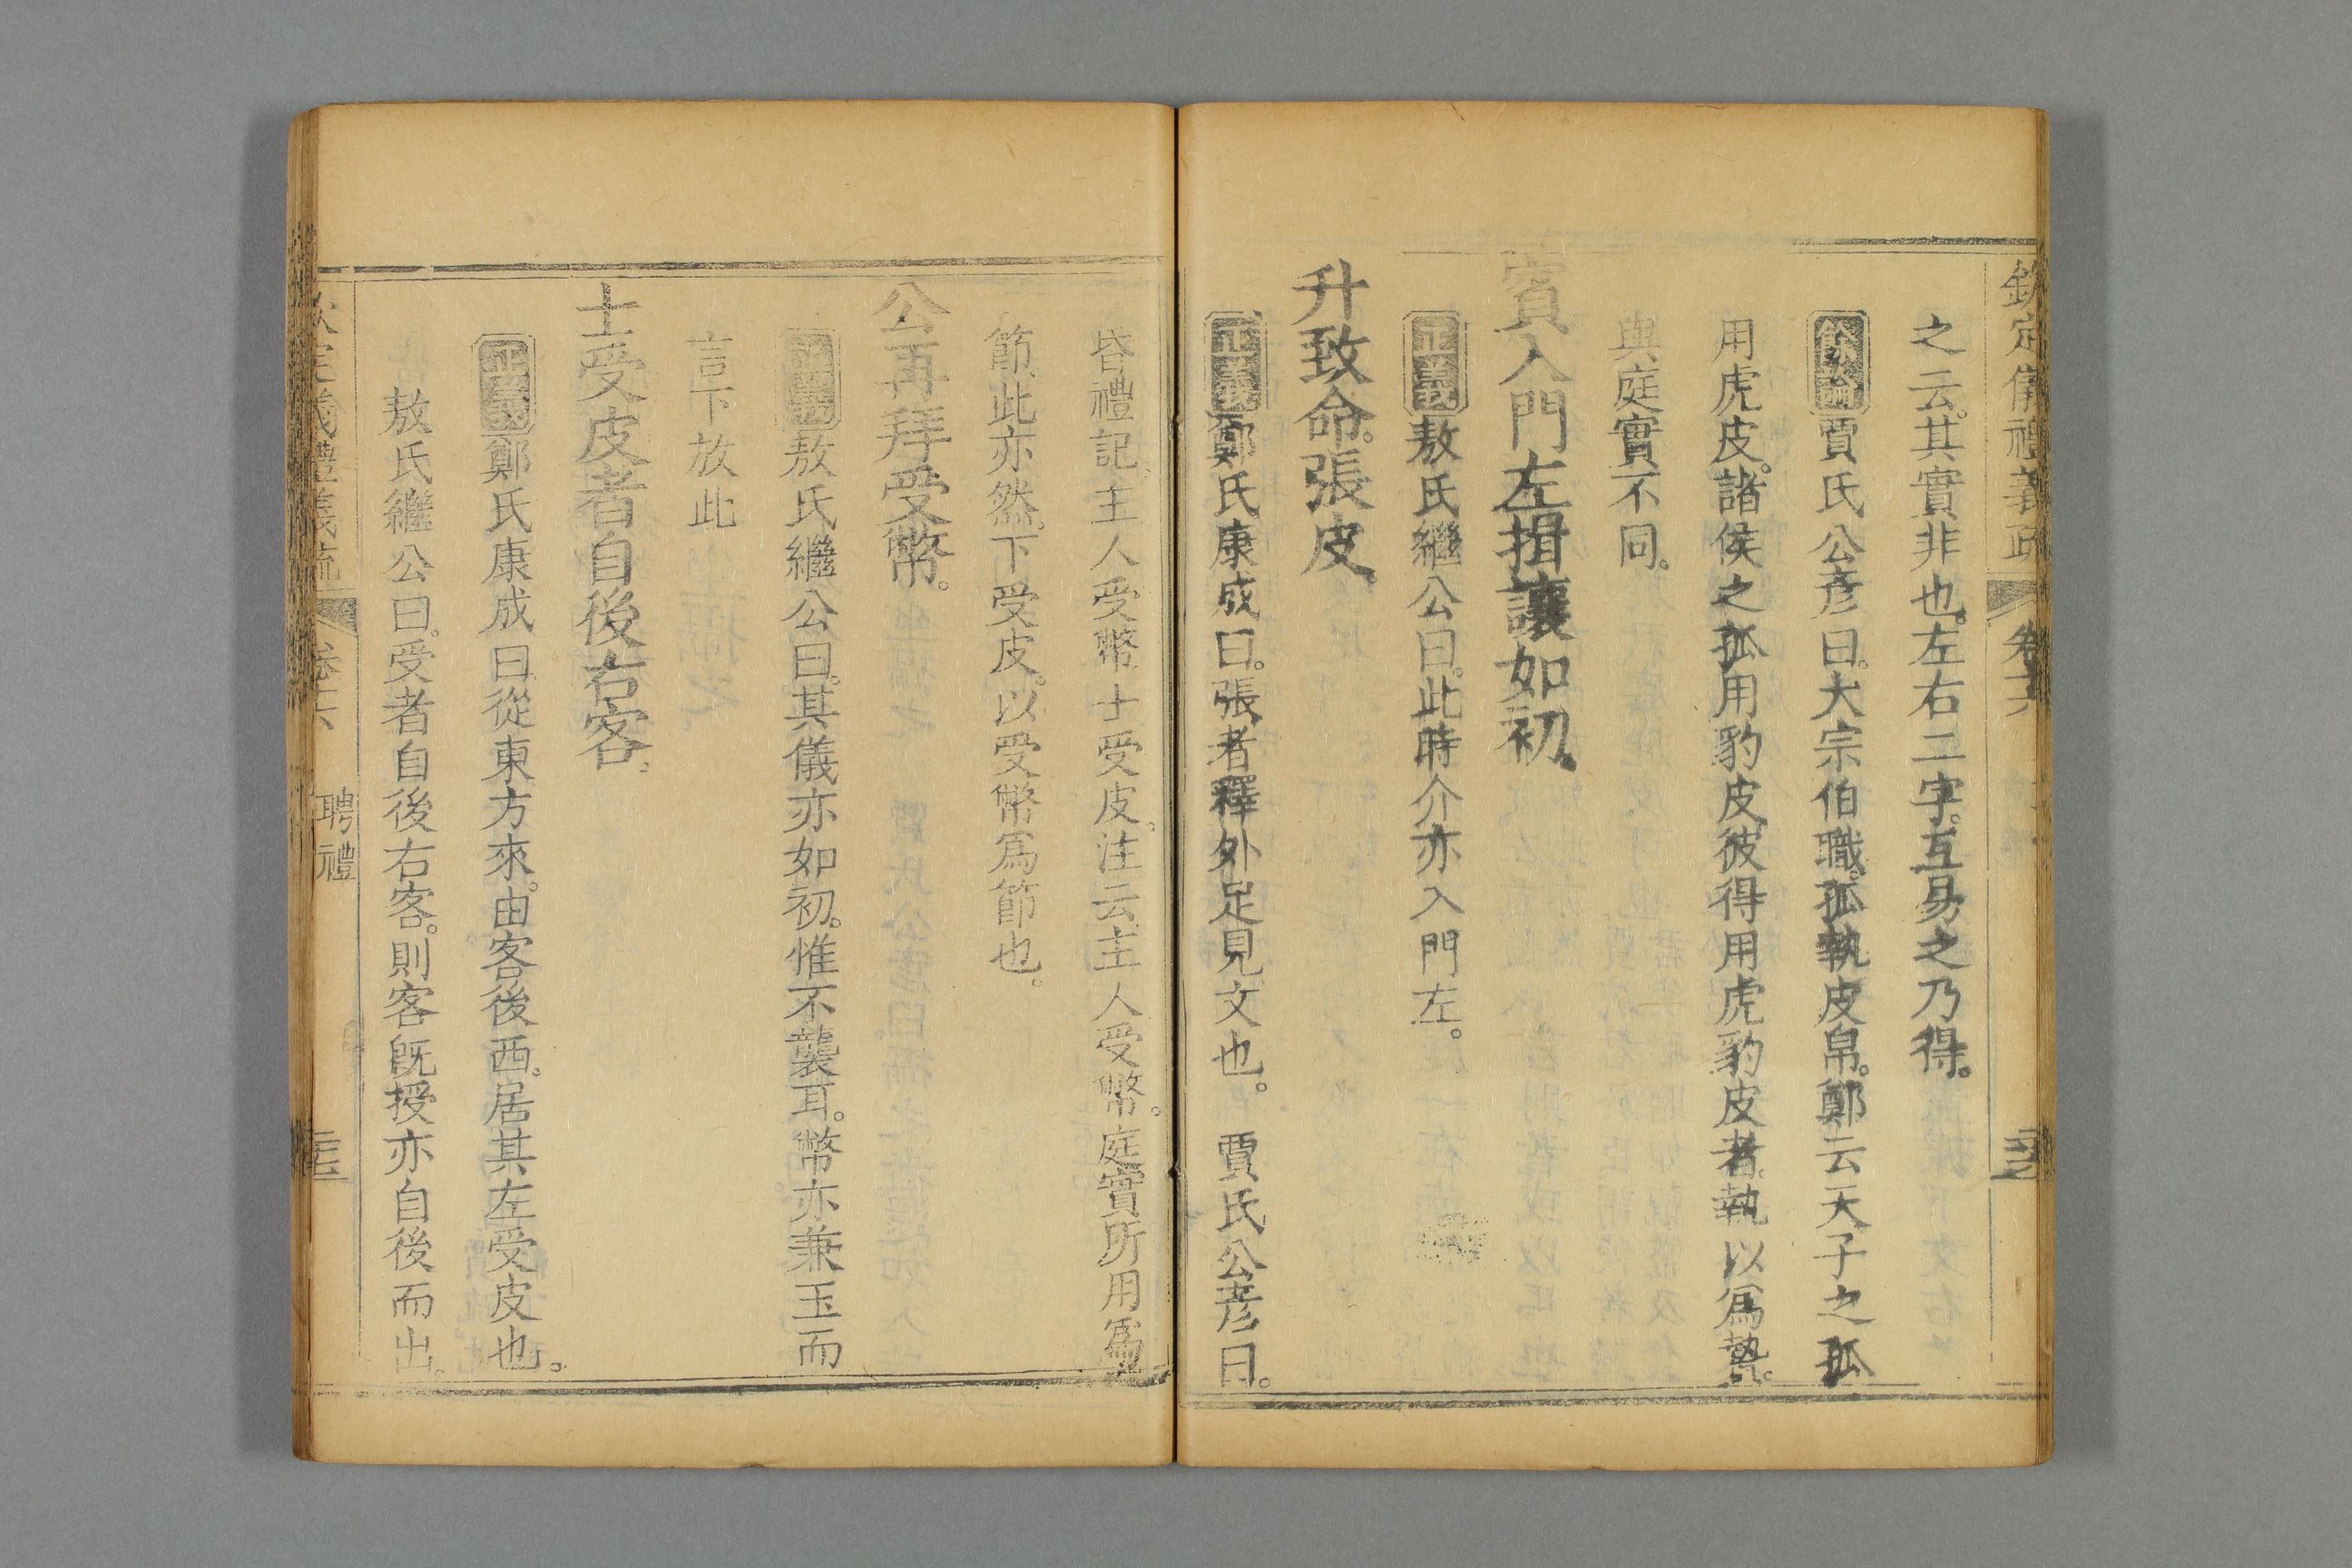 欽定儀禮義疏 卷十六
之云。其實非也。左右二字。互易之乃得。
餘論賈氏公彥曰。大宗伯職。孤執皮帛。鄭云天子之孤
用虎皮。諸侯之孤用豹皮。彼得用虎豹皮者。執以爲摯。
與庭實不同。
賓入門左。揖讓如初。
正義敖氏繼公曰。此時介亦入門左。
升致命。張皮。
正義鄭氏康成曰。張者釋外足見文也。 賈氏公彥曰。
昏禮記。主人受幣。士受皮。注云。主人受幣。庭實所用爲
節。此亦然。下受皮。以受幣爲節也。
公再拜受幣。
正義敖氏繼公曰。其儀亦如初。惟不襲耳。幣亦兼玉而
言下放此
士受皮者自後右客。
正義鄭氏康成曰。從東方來。由客後西。居其左受皮也。
敖氏繼公曰。受者自後右客。則客旣授亦自後而出。
欽定儀禮義疏 卷十六 聘禮